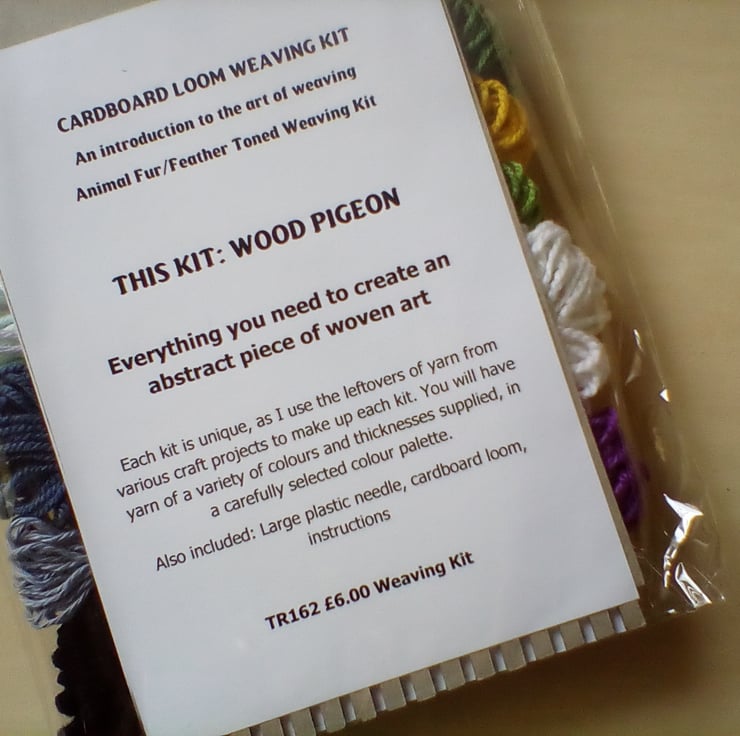 CARDBOARD LOOM WEAVING KIT
An introduction to the art of weaving
Animal Fur/Feather Toned Weaving Kit
THIS KIT: WOOD PIGEON
Everything you need to create an
abstract piece of woven art
Each kit is unique, as I use the leftovers of yarn from
various craft projects to make up each kit. You will have
yarn of a variety of colours and thicknesses supplied, in
a carefully selected colour palette.
Also included: Large plastic needle, cardboard loom,
instructions
TR162 £6.00 Weaving Kit